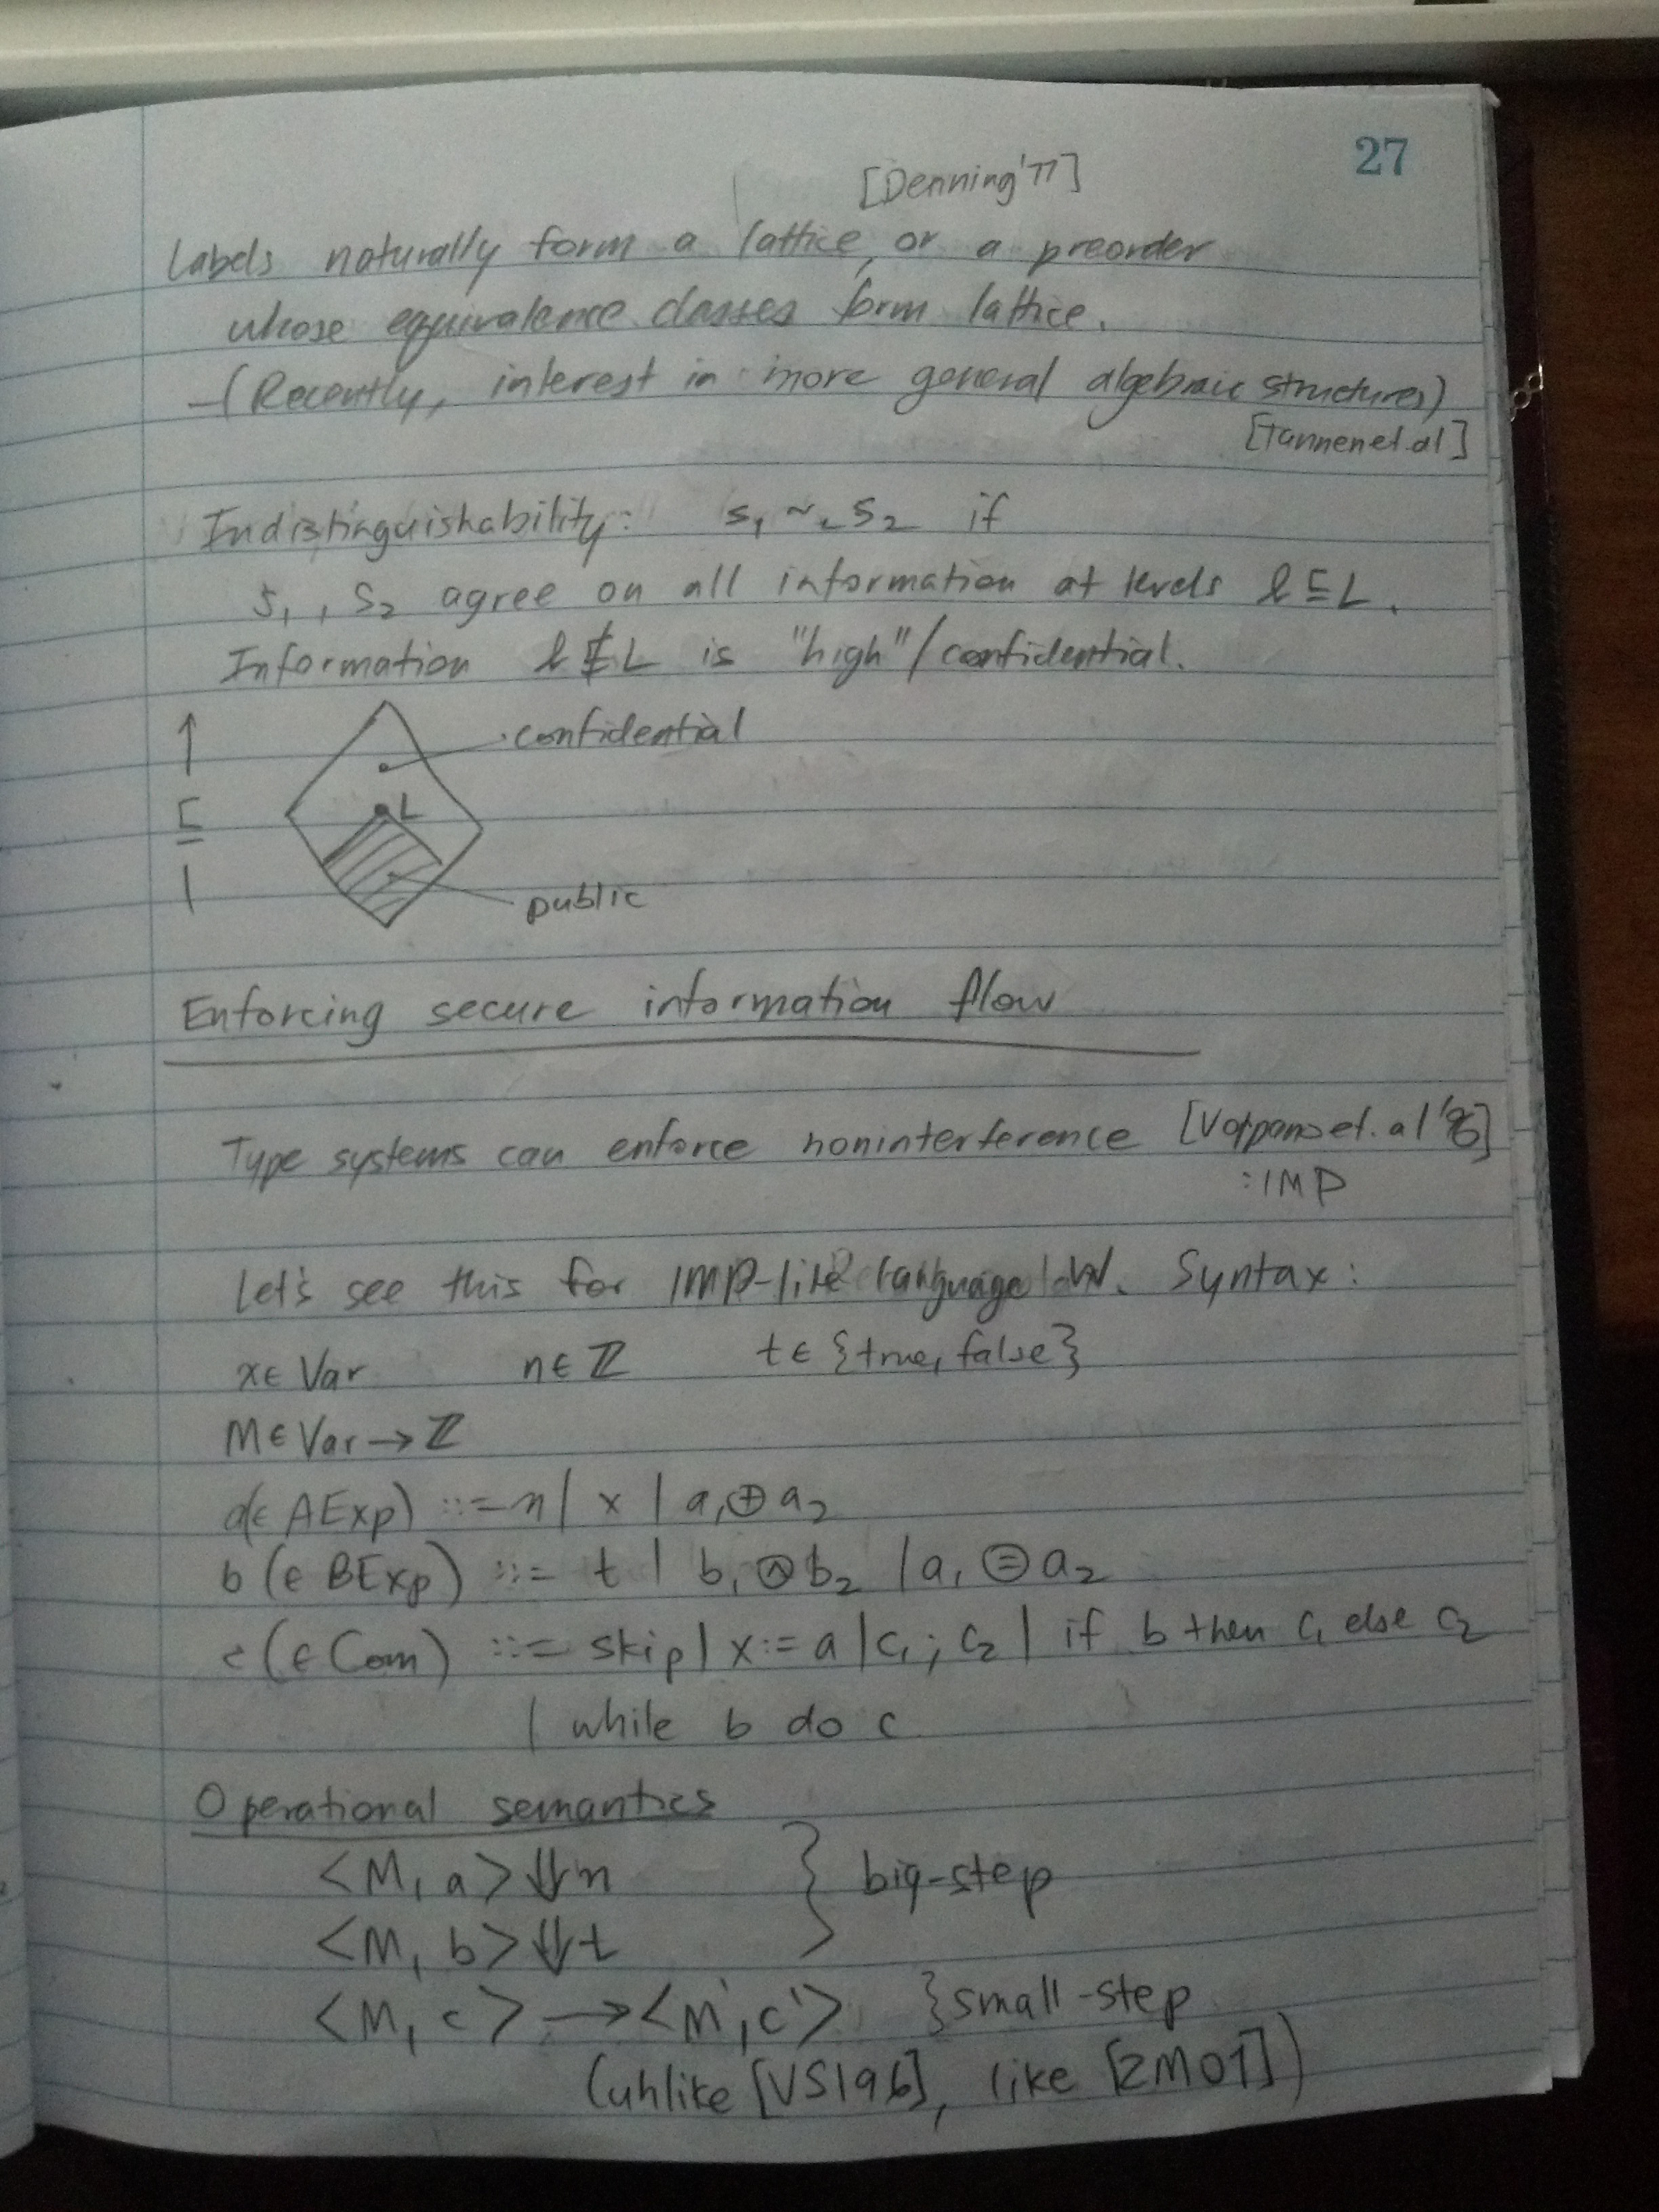 27
[Denning '77]
Labels naturally form a lattice, or a preorder
whose equivalence classes form lattice.
–(Recently, interest in more general algebraic structures)
[Tannen et.al]
Indistinguishability: s₁ ~L s₂ if
s₁, s₂ agree on all information at levels ℓ ⊑ L.
Information ℓ ⋢ L is "high"/confidential.
↑ confidential
⊑ L
| public
Enforcing secure information flow
Type systems can enforce noninterference [Volpano et. al '96]
: IMP
Let's see this for IMP-like language W. Syntax:
x ∈ Var n ∈ ℤ t ∈ {true, false}
M ∈ Var → ℤ
a(∈ AExp) ::= n | x | a₁ ⊕ a₂
b (∈ BExp) ::= t | b₁ ⊗ b₂ | a₁ ⊜ a₂
c (∈ Com) ::= skip | x := a | c₁; c₂ | if b then c₁ else c₂
| while b do c
Operational semantics
<M, a> ⇓ n } big-step
<M, b> ⇓ t
<M, c> → <M', c'> } small-step
(unlike [VSI96], like [ZM01])